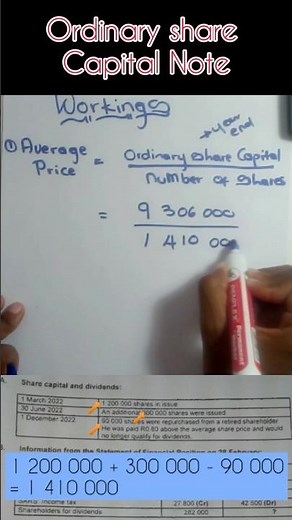 Ordinary share
Capital Note
Workings
→ year end
① Average Price = Ordinary share Capital
Number of shares
= 9 306 000
1 410 000
Share capital and dividends:
1 March 2022 1 200 000 shares in issue
30 June 2022 An additional 300 000 shares were issued
1 December 2022 90 000 shares were repurchased from a retired shareholder
He was paid R0.60 above the average share price and would
no longer qualify for dividends.
Information from the Statement of Financial Position on 28 February:
1 200 000 + 300 000 - 90 000
= 1 410 000
SARS: Income tax 27 800 (Cr) 42 500 (Dr)
Shareholders for dividends 282 000 ?